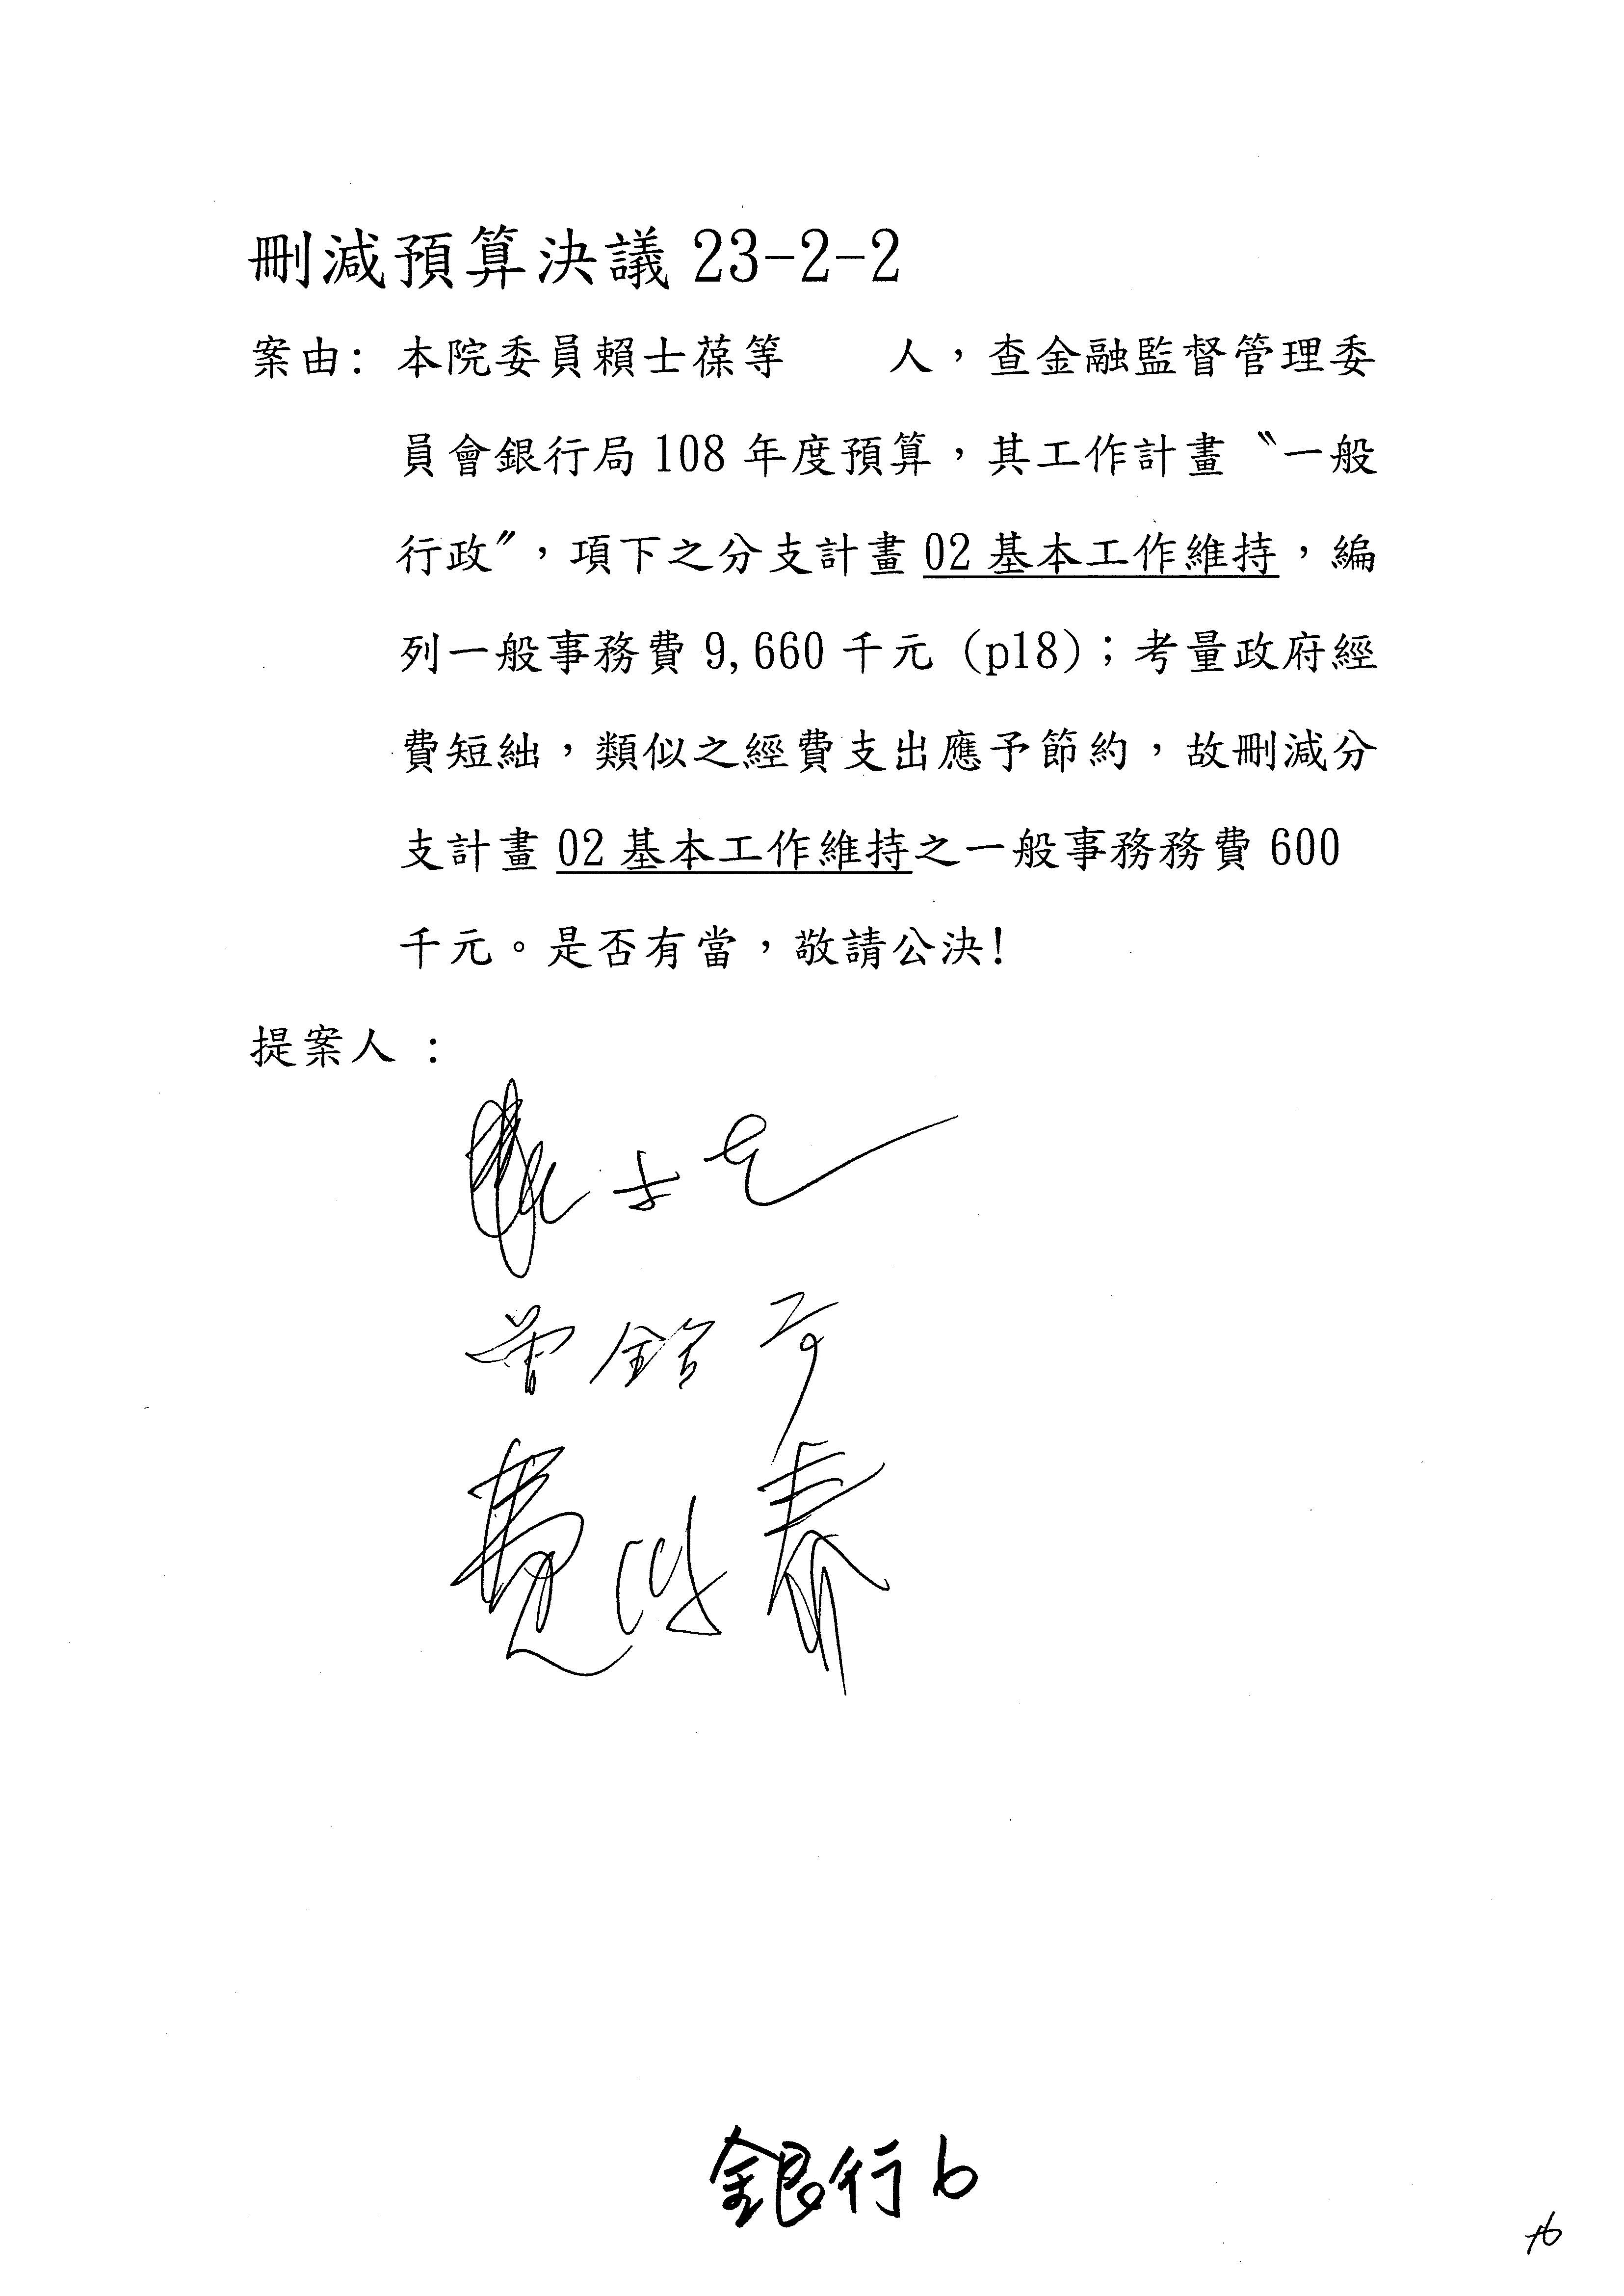 刪減預算決議 23-2-2
案由: 本院委員賴士葆等　　人，查金融監督管理委
員會銀行局 108 年度預算，其工作計畫〝一般
行政〞，項下之分支計畫 02 基本工作維持，編
列一般事務費 9,660 千元 (p18)；考量政府經
費短絀，類似之經費支出應予節約，故刪減分
支計畫 02 基本工作維持之一般事務務費 600
千元。是否有當，敬請公決!
提案人 :
賴士葆
曾銘宗
費鴻泰
銀行6